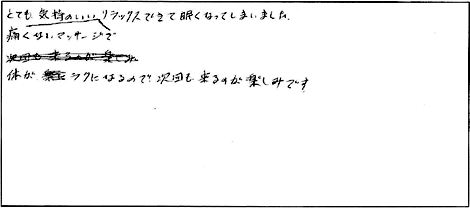 とても気持のいいリラックスできて眠くなってしまいました.
痛くないマッサージで
次回も来るのが楽しみ
体がラクになるので次回も来るのが楽しみです